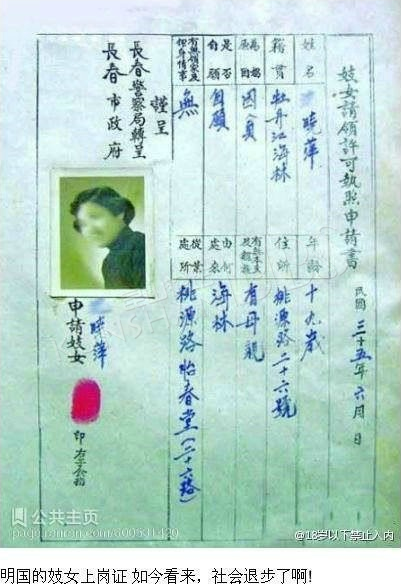 妓女請領許可執照申請書
民國三十五年六月 日
姓名 曉萍
年齡 十九歲
籍貫 牡丹江海林
住所 桃源路二十六號
為娼原因 因貧
有母親
是否自願 自願
由何處來 海林
無
從業處所 桃源路怡春堂
謹呈
長春警察局轉呈
長春市政府
申請妓女 曉萍
印
公共主页
@18岁以下禁止入内
明国的妓女上岗证 如今看来，社会退步了啊!